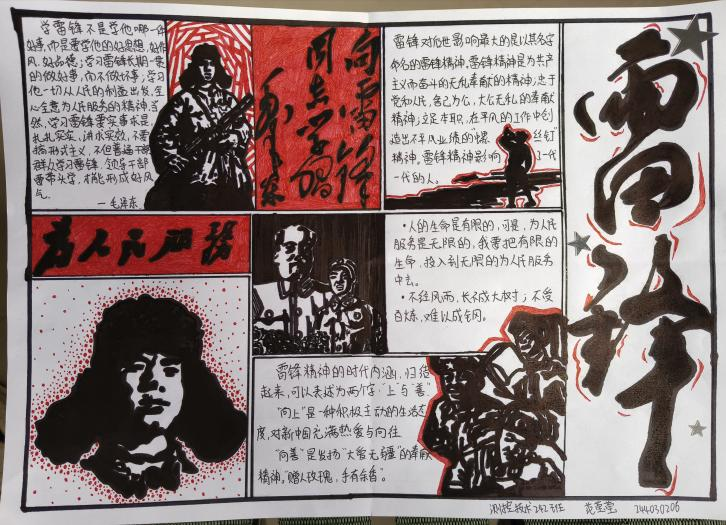 学雷锋不是学他哪一件
好事,而是要学他的好思想、好作
风、好品德;学习雷锋长期一贯
的做好事,而不做坏事;学习
他一切从人民的利益出发,全
心全意为人民服务的精神。当
然,学习雷锋要实事求是,
扎扎实实,讲求实效,不要
搞形式主义,不但普通干部、
群众学习雷锋,领导干部
要带头学,才能形成好风
气。
—毛泽东
向雷锋
同志学习
毛泽东
雷锋对后世影响最大的是以其名字
命名的雷锋精神,雷锋精神是为共产
主义而奋斗的无私奉献的精神;忠于
党和人民、舍己为公、大公无私的奉献
精神;立足本职、在平凡的工作中创
造出不平凡业绩的"螺丝钉"
精神,雷锋精神影响了一代
一代的人。
雷锋
为人民服务
·人的生命是有限的,可是,为人民
服务是无限的,我要把有限的
生命,投入到无限的为人民服务
中去。
·不经风雨,长不成大树;不受
百炼,难以成钢。
雷锋精神的时代内涵,归结
起来,可以表述为两个字:"上与善"
"向上"是一种积极主动的生活态
度,对新中国充满热爱与向往
"向善"是发扬"大爱无疆"的奉献
精神,"赠人玫瑰,手有余香"。
测控技术242班 范莹莹 244030206